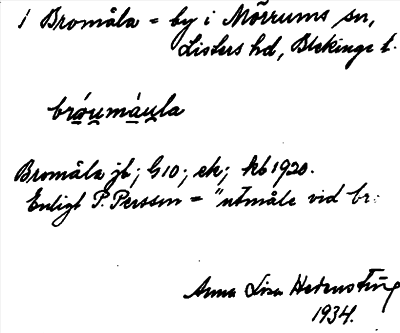 1 Bromåla = by i Mörrums sn,
Listers hd, Blekinge l.
bróu̯máu̯la
Bromåla jb; G10; ek; kb 1920.
Enligt P. Persson = "utmåle vid br:
Anna Lisa
1934.